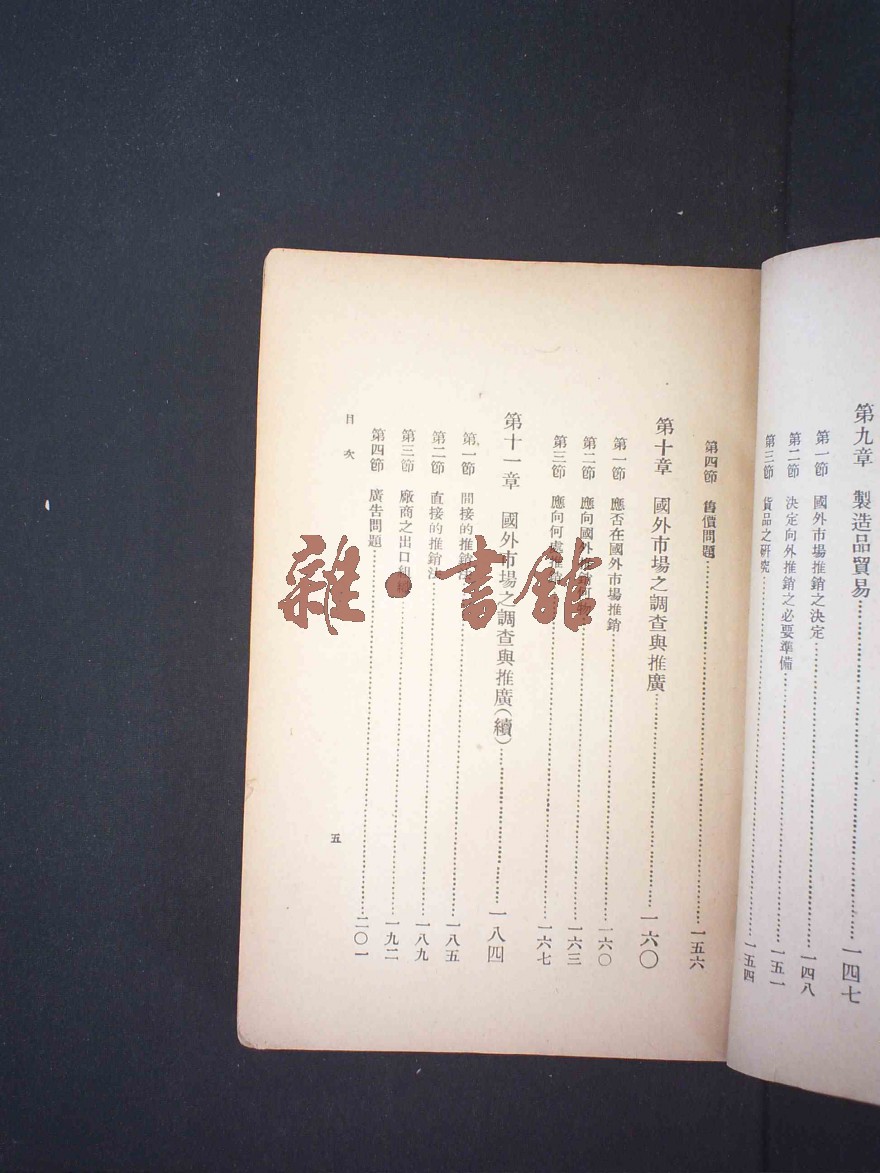 第九章 製造品貿易……一四七
第一節 國外市場推銷之決定……一四八
第二節 決定向外推銷之必要準備……一五一
第三節 貨品之研究……一五四
第四節 售價問題……一五六
第十章 國外市場之調查與推廣……一六〇
第一節 應否在國外市場推銷……一六〇
第二節 應向國外推銷何物……一六三
第三節 應向何處推銷……一六七
第十一章 國外市場之調查與推廣(續)……一八四
第一節 間接的推銷法……一八五
第二節 直接的推銷法……一八九
第三節 廠商之出口組織……一九二
第四節 廣告問題……二〇一
目次
五
雜·書館